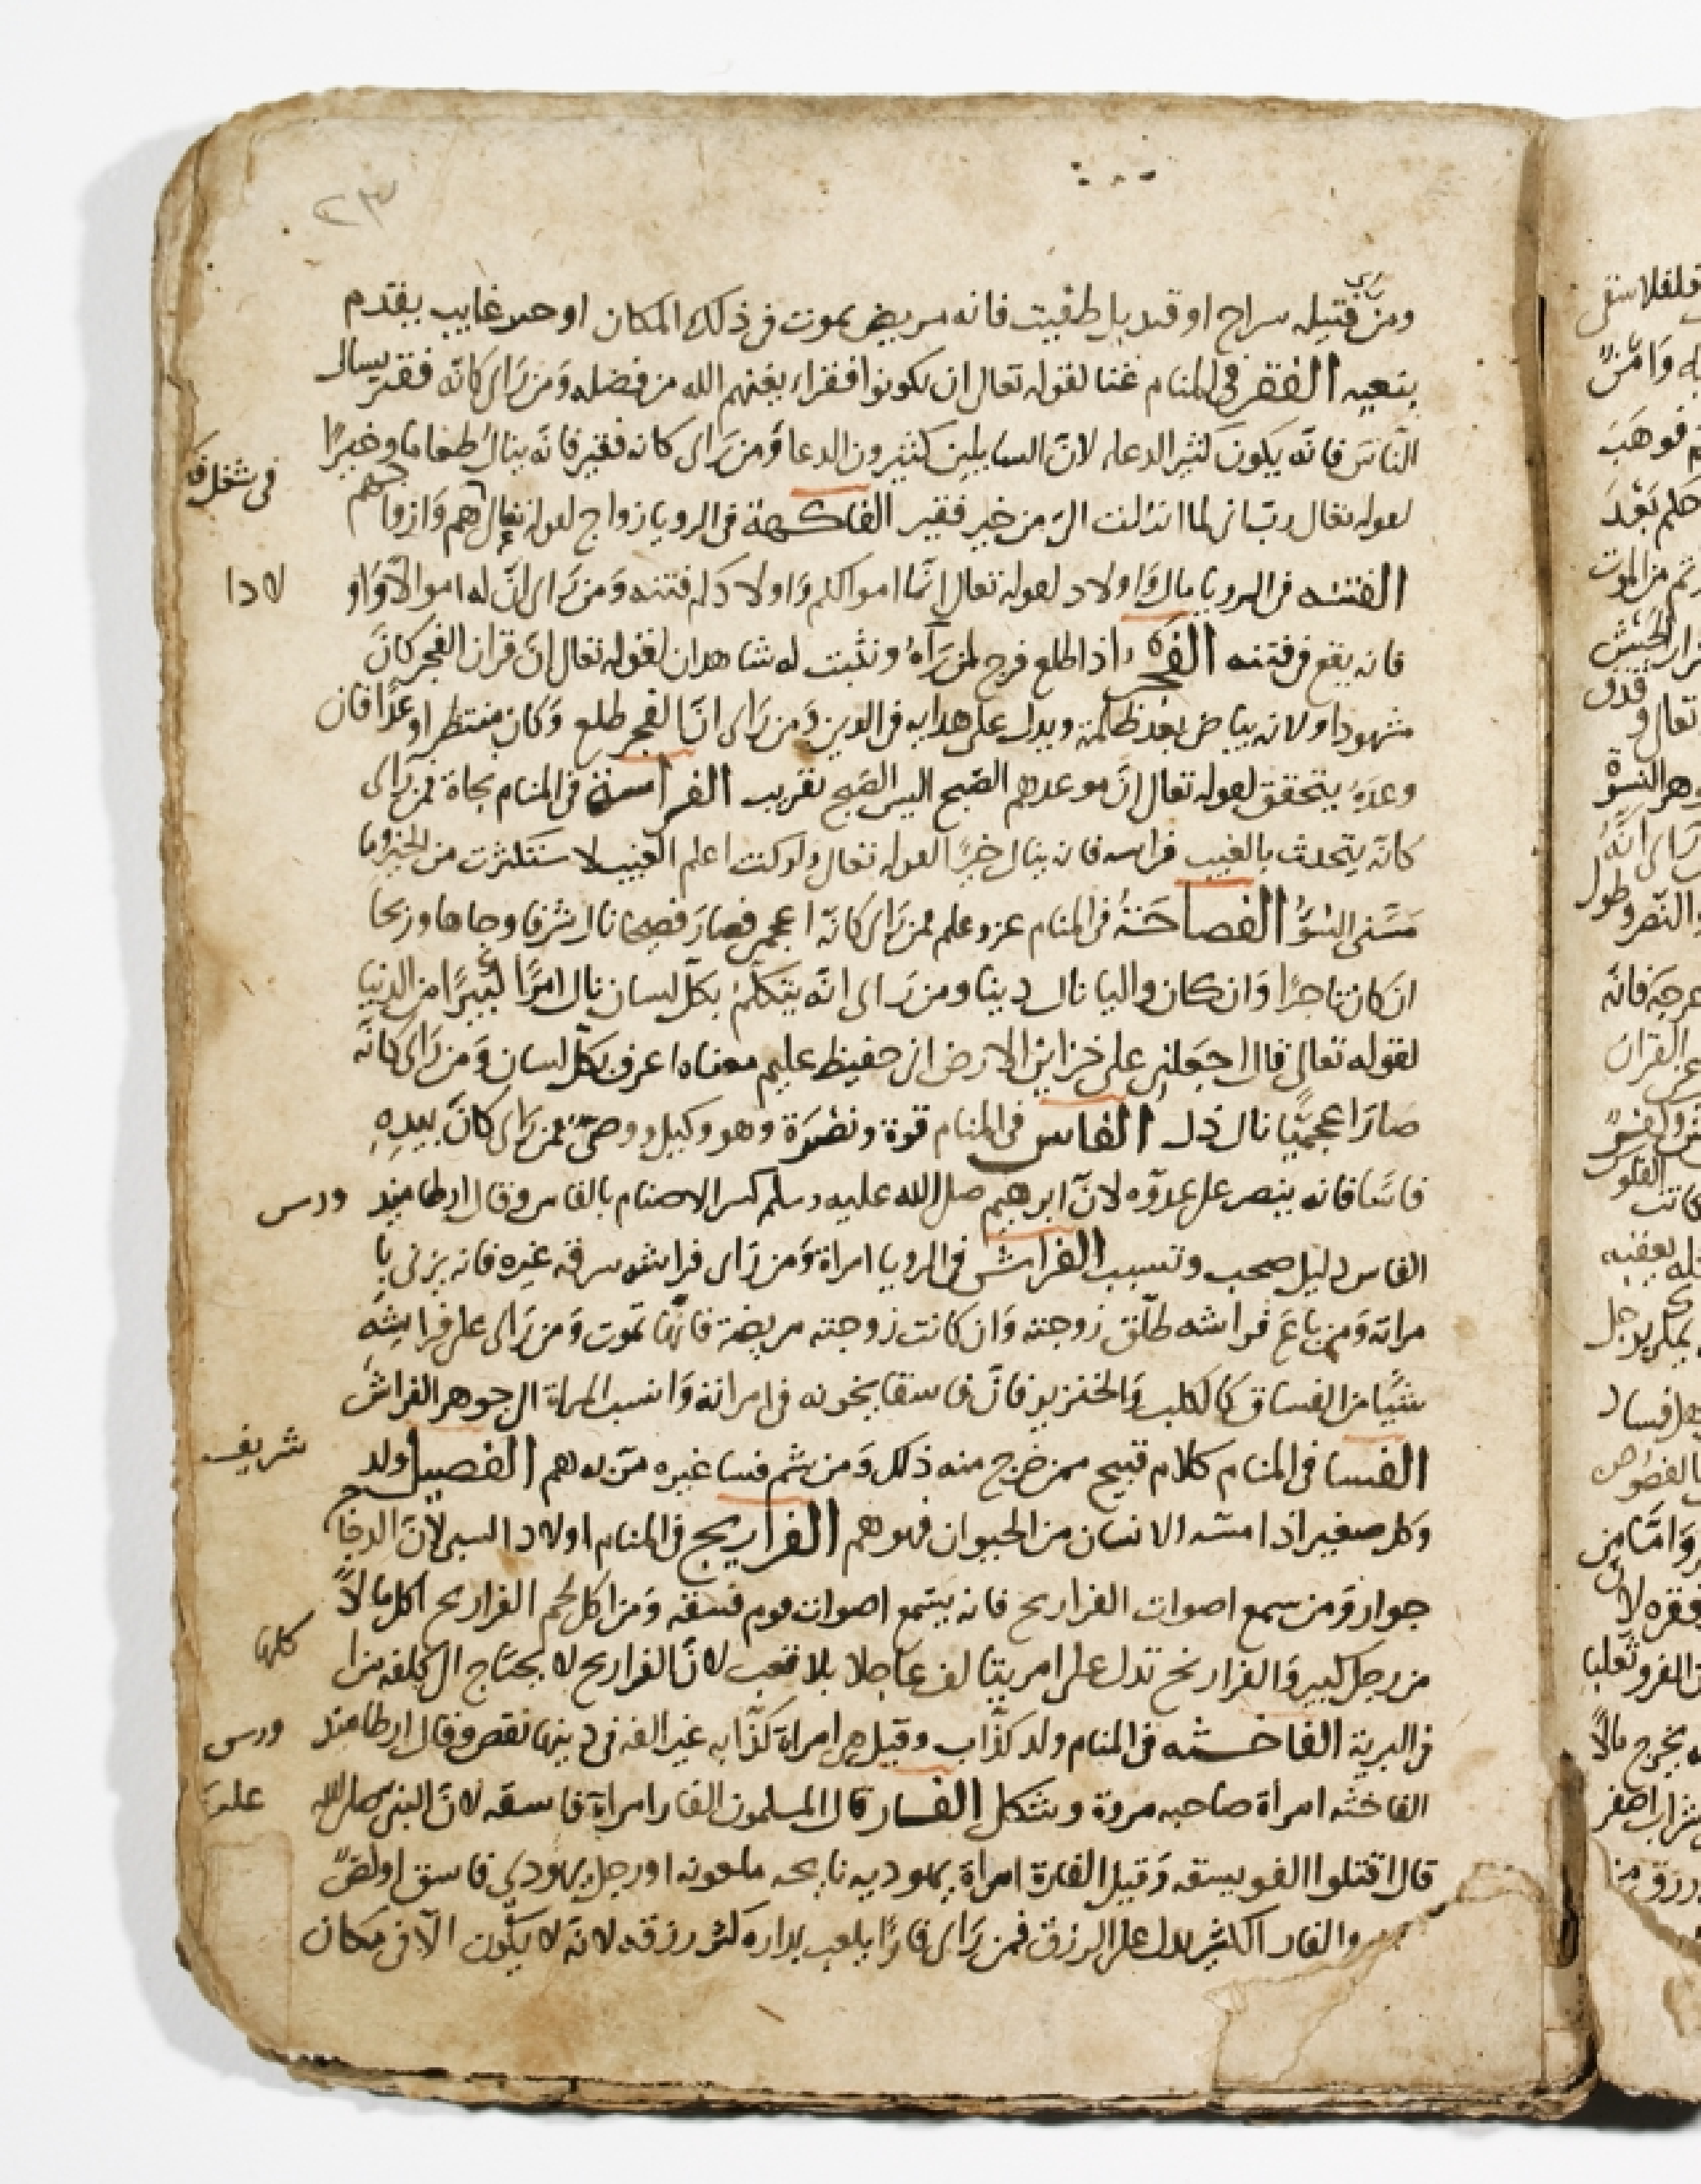 ٢٣
ومن راى فتيله سراج او قنديل طفيت فانه مريض يموت فى ذلك المكان او خبر غايب يقدم
بنعيه الفقر فى المنام غنا لقوله تعالى ان يكونوا فقراء يغنهم الله من فضله وَمن رَاى كانّه فقير يسال
النّاسَ فانّه يكونَ كثير الدعاء لانّ السايلين كثيرون الدعا وَمن رَاى كانه فقير فانّه ينال طعاما وخيرًا
لقوله تعالى ربّ انى لما انزلت الىّ من خير فقير الفاكهة فى الرويا زواج لقوله تعالى هم وَازواجهم
فى شغل فا
الفتنه فى الرويا مال وَاولاد لقوله تعالى انّما اموالكم وَاولادكم فتنه وَمن رَاى انّ له اموالا وَاو
لادا
فانه يقع فى فتنه الفجر اذا طلع فرج لمن رَآهُ ونثبت له شاهدان لقوله تعالى انّ قران الفجر كانَ
مشهودا ولانه بياض بعد ظلمة ويدل على هدايه فى الدين وَمن رَاى انّ الفجر طلع وَكان منتظر او عدًا فان
وعدَهُ يتحقق لقوله تعالى انّ موعدهم الصّبح اليس الصّبح بقريب الفراسة فى المنام نجاة فمن رَاى
كانّه يتحدث بالغيب فراسه فانه ينال خيرًا لقوله تعالى ولو كنت اعلم الغيب لاستكثرت من الخير وما
مَسّنى السّوُ الفصاحَةُ فى المنام عز وعلم فمن رَاى كانّه اعجمى فصارَ فصيحا نال شرفا وجاها وربحا
ان كان تاجرًا وَان كان واليا نال دينا ومن رَاى انّه يتكلّمُ بكلّ لسان نال امرًا كبيرًا من الدنيا
لقوله تعالى قال اجعلنى على خزاين الارض انى حفيظ عليم معناه اعرف بكلّ لسان وَمن رَاى كانّه
صارَ اعجميّا نال ذل الفاس فى المنام قوة ونصرَة وهو وكيل ووصىّ فمن رَاى كانَ بيدِهِ
فاسًا فانه ينصر على عدوّه لانّ ابرهيم صلى الله عليه وسلم كسر الاصنام بالفاس وقال ارطاميد
ورس
الفاس دليل صحب وتسبب الفراش فى الرويا امراة وَمن رَاى فراشه سرقه غيره فانه يزنى با
مراته وَمن باعَ فراشه طلّق زوجته وَان كانت زوجته مريضة فانّها تموت وَمن رَاى على فراشِهِ
شيًا من الفساق كالكلب وَالخنزير فانّ فاسقا يخونه فى امراته وَانسب المراة الى جوهر الفراش
الفسا فى المنام كلام قبيح ممن خرج منه ذلك وَمن شم فسا غيره مرّ به هم الفصيل ولد
شريف
وكل صغير اذا مسّه الانسان من الحيوان فهو هم الفراريج فى المنام اولاد السبى لانّ الدجاج
جوار وَمن سمع اصوات الفراريج فانه يستمع اصوات قوم فسقه وَمن اكل لحم الفراريج اكل مالاً
من رجل كبير وَالفراريج تدل على امر يتالف عاجلا بلا تعب لانّ الفراريج لا يحتاج الى كلفه من ا
كلها
فى البرية الفاخته فى المنام ولد كذّاب وقيل هى امراة كذّابه غير الفه فى دينها نقص وقال ارطاميد
ورس
الفاخته امراة صاحبه مروة وشكل الفار قال المسلمون الفار امراة فاسقه لانّ النبى صلى الله
عليه
قال اقتلوا الفويسقه وَقيل الفارة امراة يهوديه نايحه ملعونه او رجل يهودى فاسق او لصّ
والفار الكثير يدل على الرزق فمن رَاى فارًا يلعب بداره كثر رزقه لانّه لا يكون الّا فى مكان